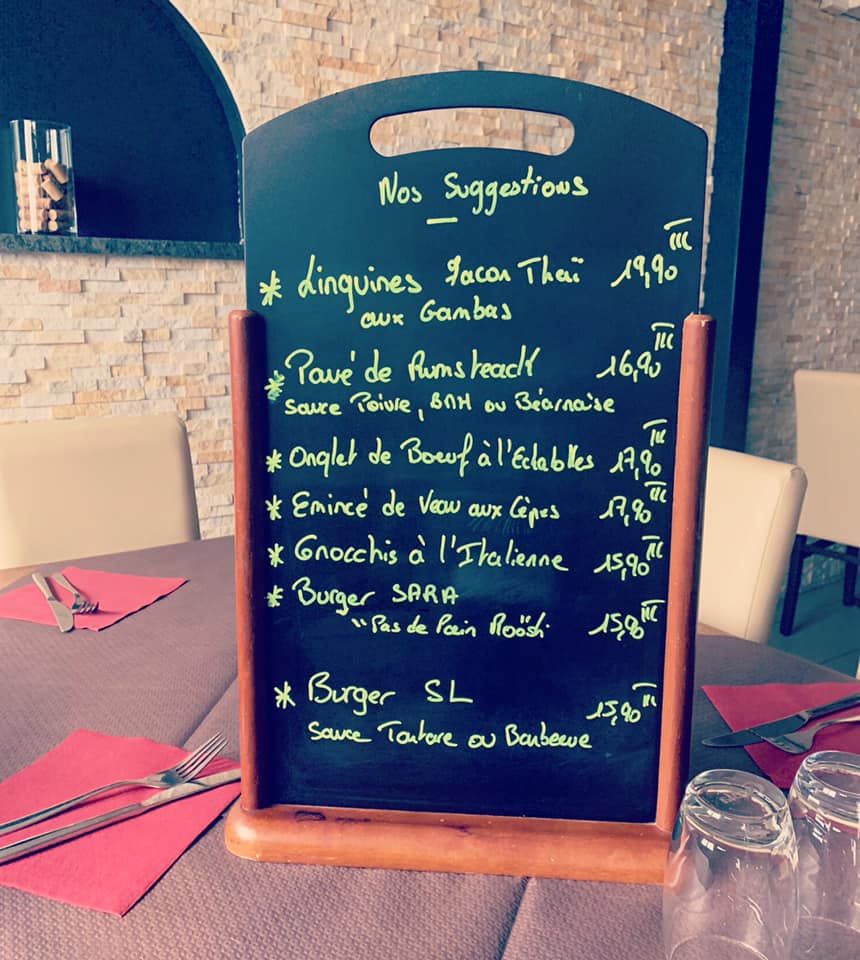 Nos Suggestions
* Linguines façon Thaï 19,90
aux Gambas
* Pavé de Rumsteack 16,90
Sauce Poivre, BAH ou Béarnaise
* Onglet de Boeuf à l'Echablles 17,90
* Emincé de Veau aux Cèpes 17,90
* Gnocchis à l'Italienne 15,90
* Burger SARA
"Pas de Pain Roösti 15,90
* Burger SL 15,90
Sauce Tartare ou Barbecue